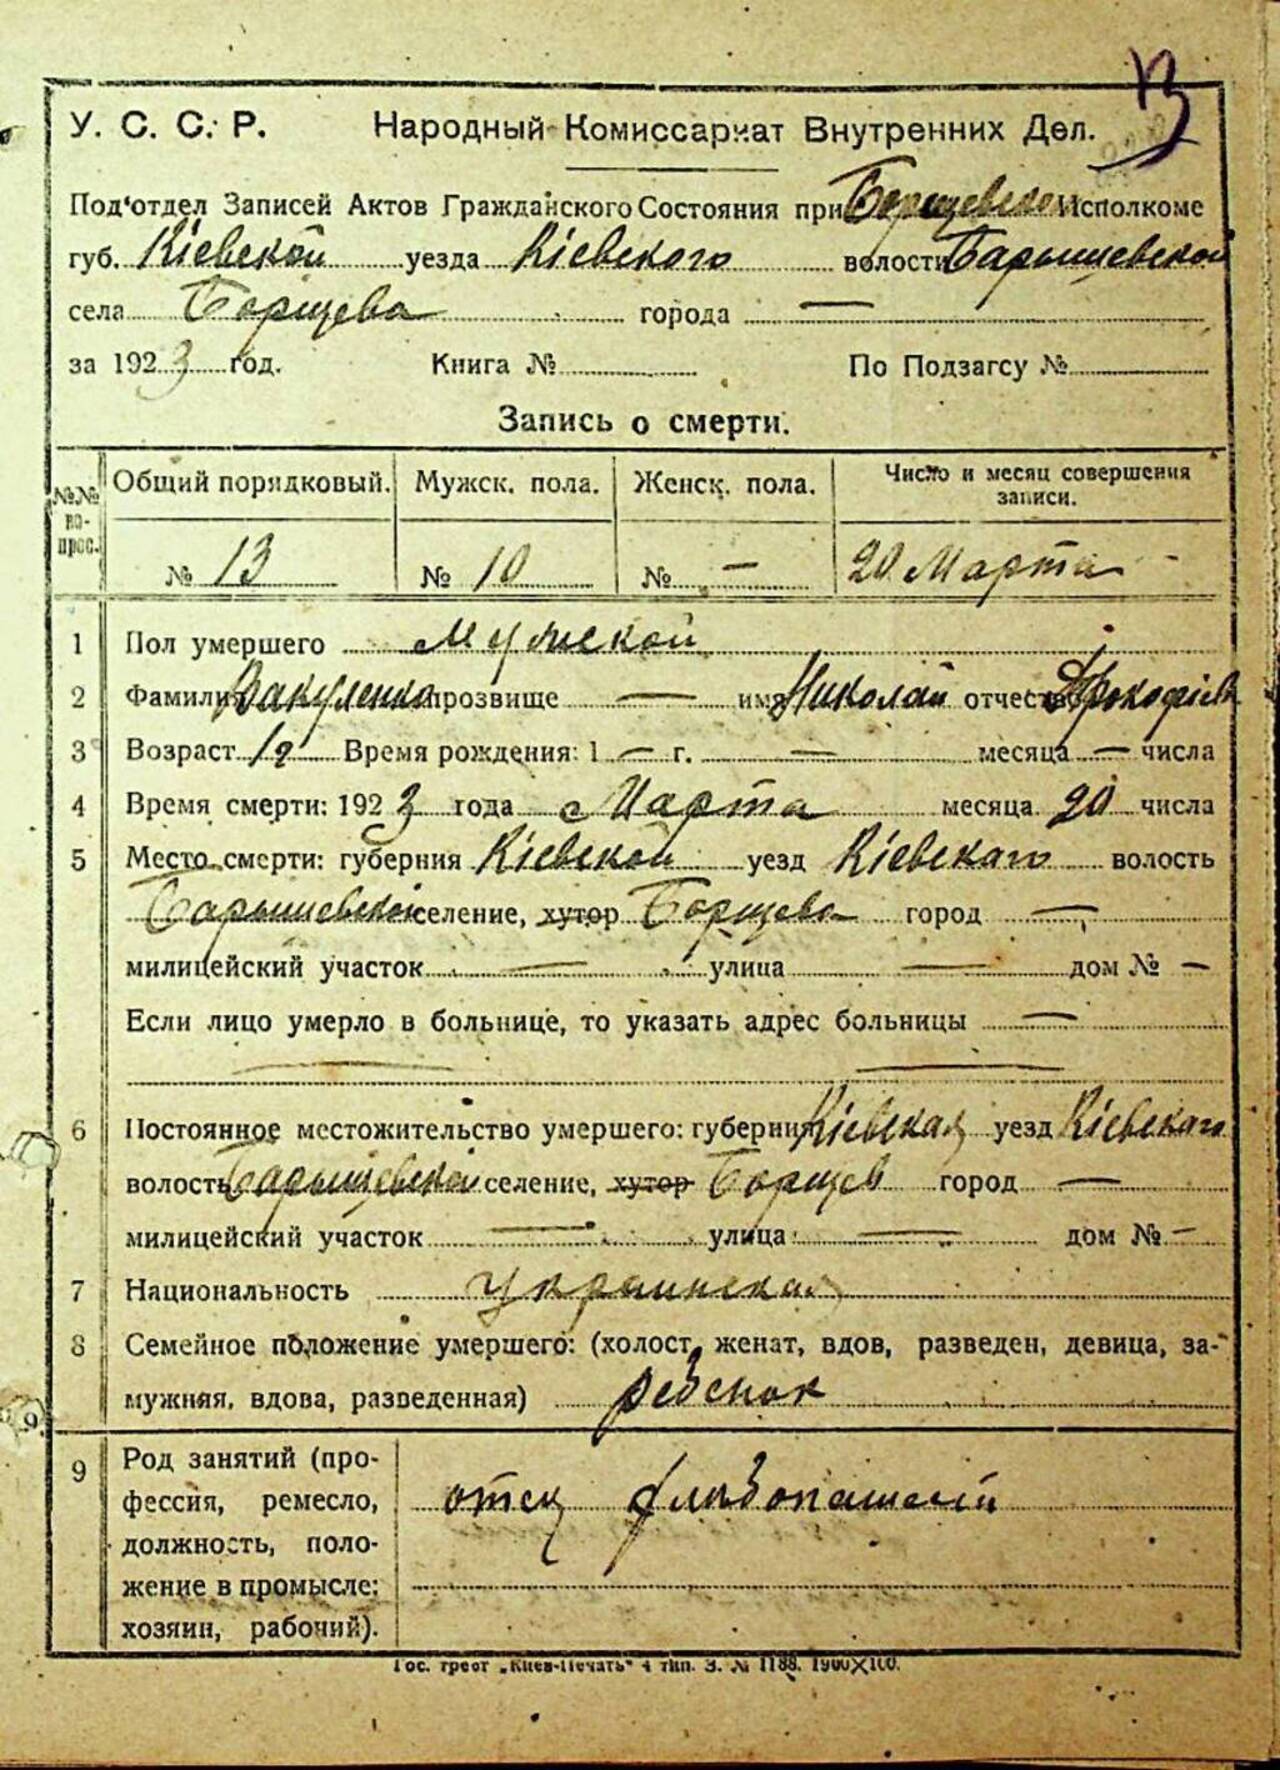 13
У. С. С. Р. Народный Комиссариат Внутренних Дел.
Под'отдел Записей Актов Гражданского Состояния при Борщевском Исполкоме
губ. Кіевской уезда Кіевского волости Барышевской
села Борщева города —
за 1923 год. Книга № По Подзагсу №
Запись о смерти.
№№ вопрос. Общий порядковый. Мужск. пола. Женск. пола. Число и месяц совершения записи.
№ 13 № 10 № — 20 Марта
1 Пол умершего Мужской
2 Фамилия Вакуленко прозвище — имя Николай отчество Прокофіев
3 Возраст Время рождения: 1 — г. — месяца — числа
4 Время смерти: 1923 года Марта месяца 20 числа
5 Место смерти: губерния Кіевской уезд Кіевскаго волость
Барышевской селение, хутор Борщева город —
милицейский участок — улица — дом № —
Если лицо умерло в больнице, то указать адрес больницы —
6 Постоянное местожительство умершего: губерния Кіевская уезд Кіевскаго
волость Барышевской селение, хутор Борщев город —
милицейский участок — улица — дом № —
7 Национальность Украинская
8 Семейное положение умершего: (холост, женат, вдов, разведен, девица, за-
мужняя, вдова, разведенная) ребенок
9 Род занятий (про-
фессия, ремесло,
должность, поло-
жение в промысле:
хозяин, рабочий).
отец
Гос. трест „Киев-Печать“ 4 тип. З. № 1188. 1900×100.